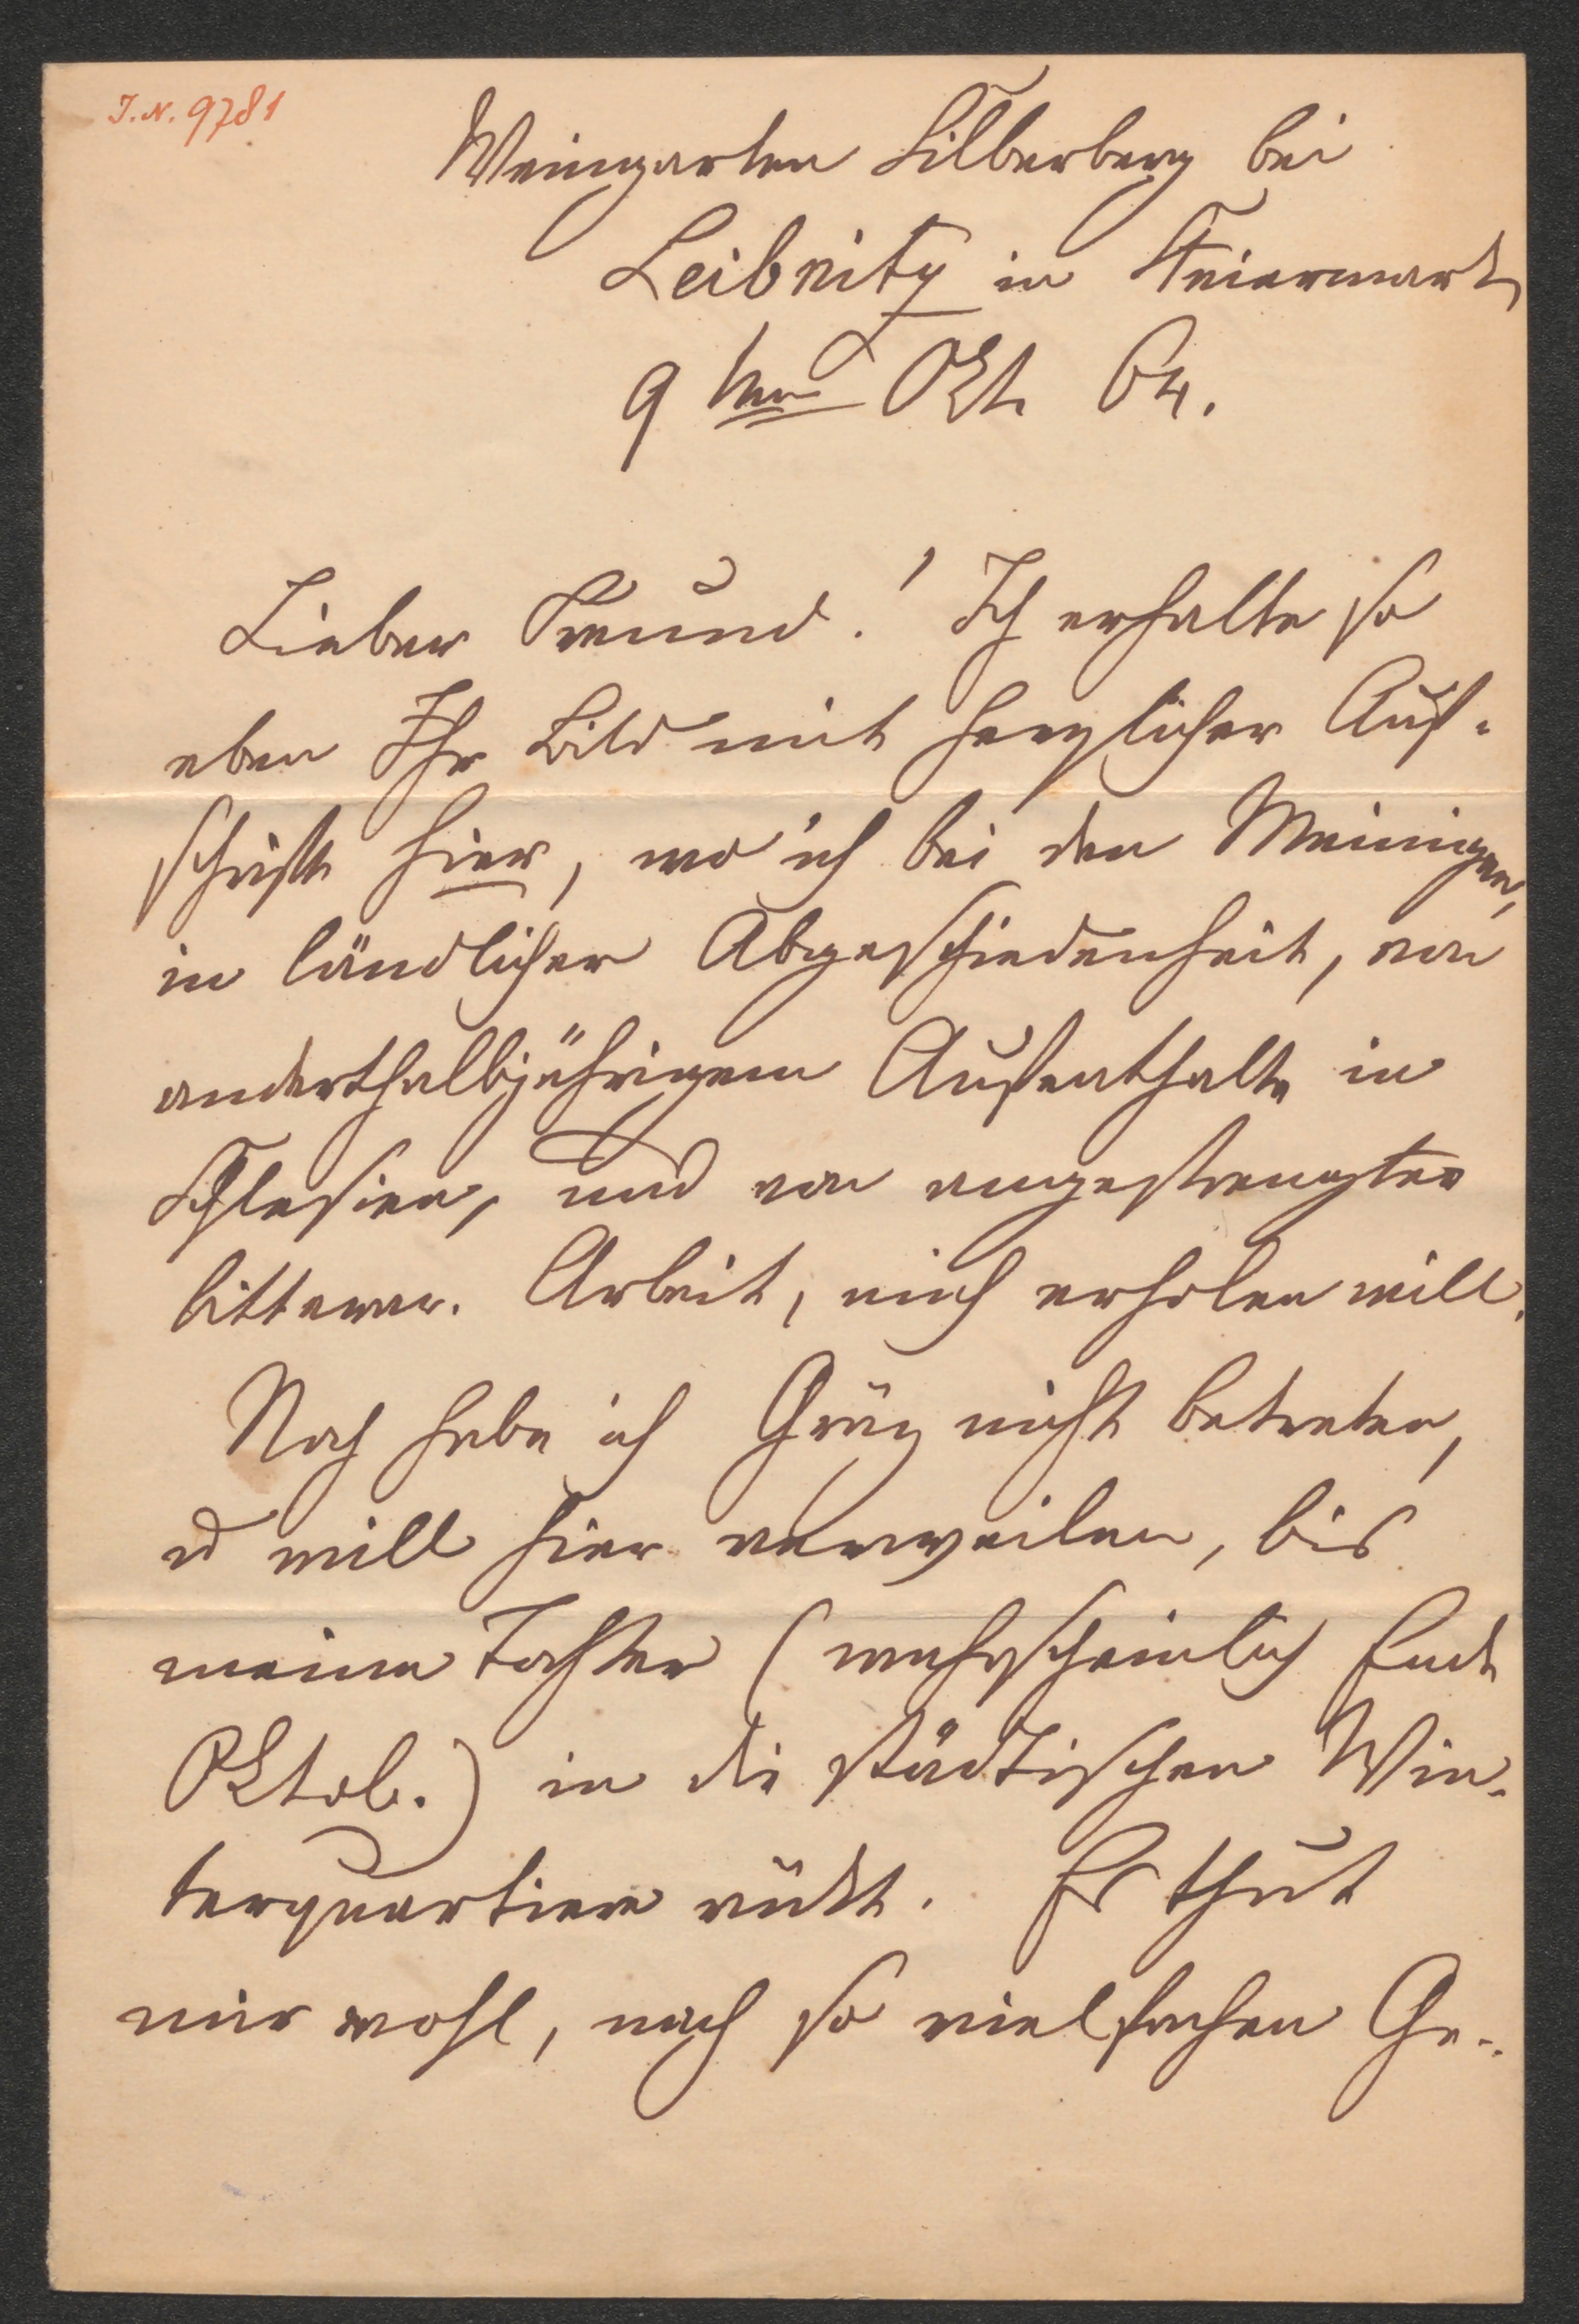 I. N. 9781
Weingarten Silberberg bei
Leibnitz in Steiermark
9 ten Okt. 64.
Lieber Freund! Ich erhalte so
eben Ihr Bild mit herzlicher Auf-
schrift hier, wo ich bei den Meinigen,
in ländlicher Abgeschiedenheit, von
anderthalbjährigem Aufenthalte in
Schlesien, und von angestrengter
bitterer Arbeit, mich erholen will.
Noch habe ich Gräz nicht betreten,
u will hier verweilen, bis
meine Tochter (wahrscheinlich Ende
Oktob.) in die städtischen Win-
terquartiere rückt. Es thut
mir wohl, nach so vielfachen Ge-